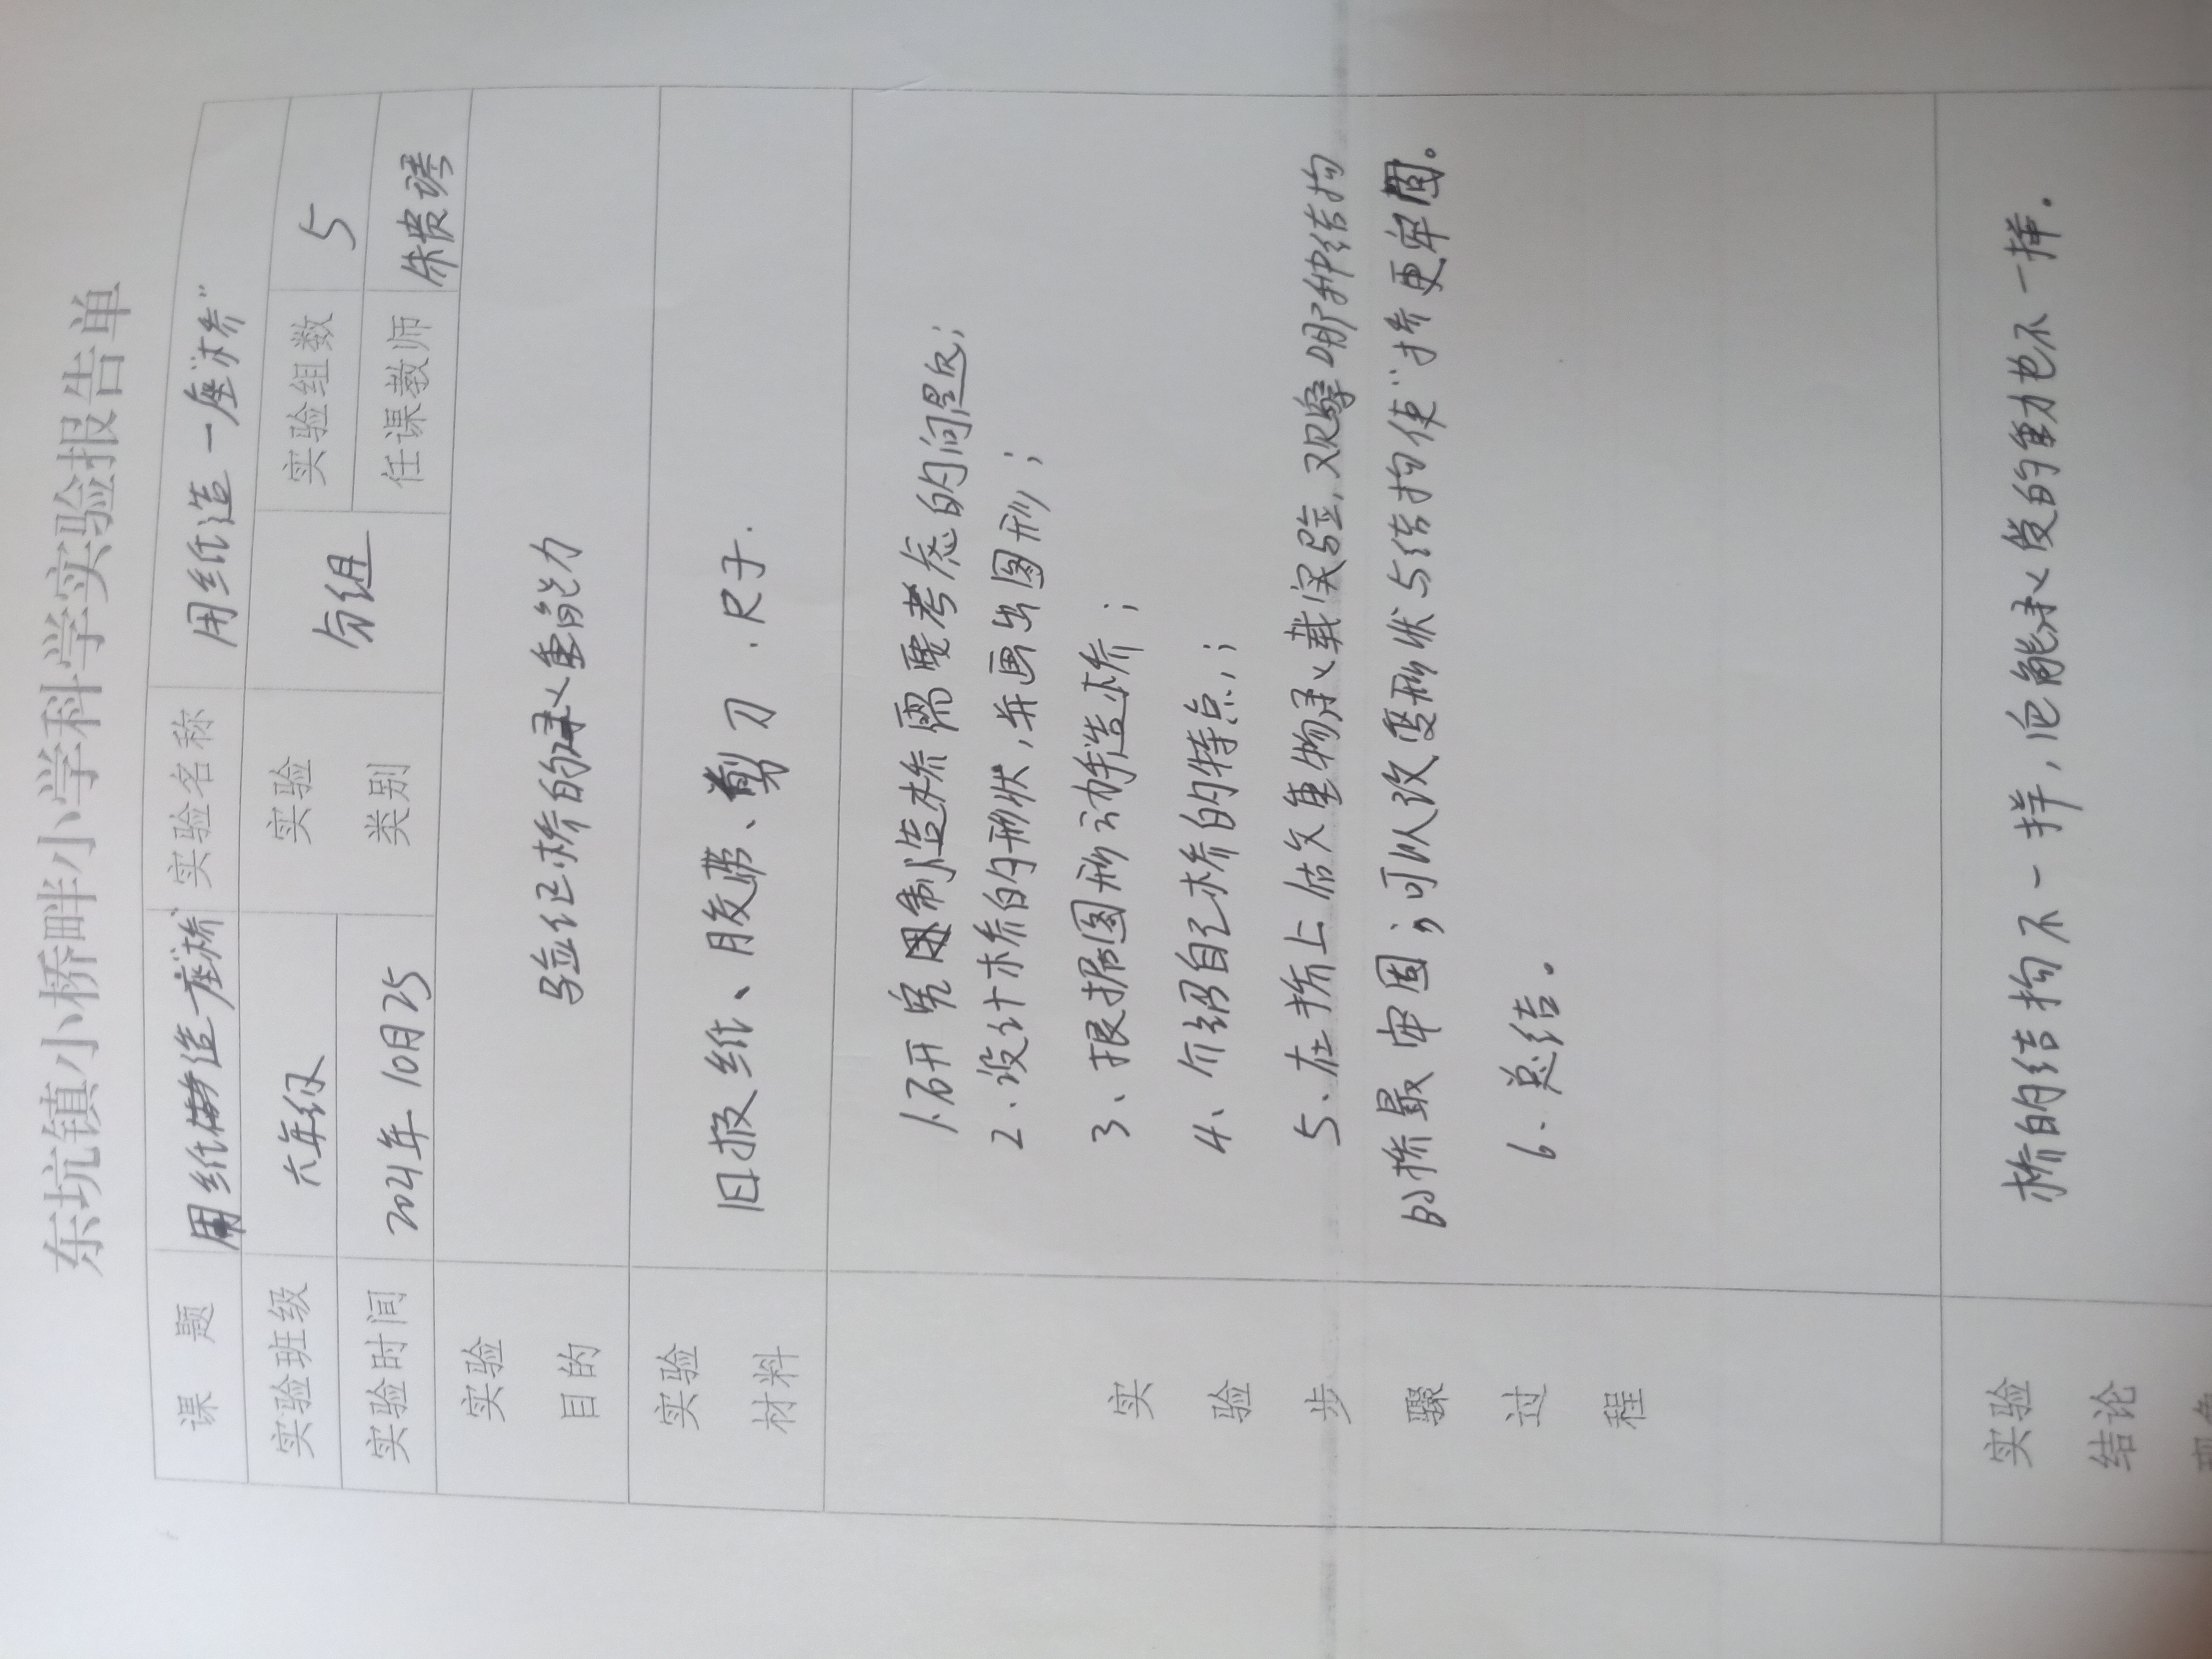 东坑镇小桥畔小学科学实验报告单
课 题 用纸造一座桥 实验名称 用纸造一座“桥”
实验班级 六年级 实验类别 分组 实验组数 5
实验时间 2021年10月25 任课教师 朱贵
实验目的 验证桥的承重能力
实验材料 旧报纸、胶带、剪刀.尺子.
实验步骤过程
1.研究用制造桥需要考虑的问题;
2.设计桥的形状,并画出图形;
3、根据图形动手造桥;
4、介绍自己桥的特点;;
5、在桥上放重物承载实验,观察哪种结构
的桥最牢固;可以改变形状与结构使“桥更牢固。
6、总结。
实验结论 桥的结构不一样,它能承受的重力也不一样.